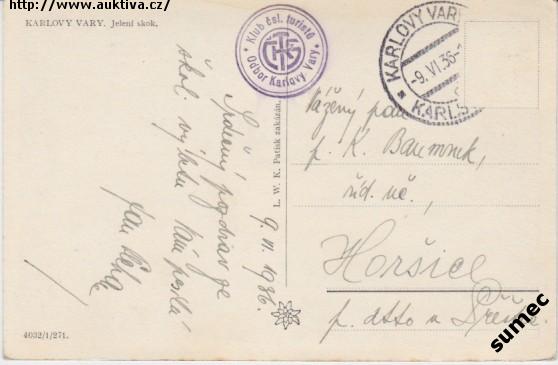 http://www.auktiva.cz
KARLOVY VARY. Jelení skok.
Klub čsl. turistů
Odbor Karlovy Vary
KČST
KARLOVY VARY
-9.VI.36-
KARLS
L. W. K. Patisk zakázán.
Srdečný pozdrav ze
škol. výletu Vám posílá
Jan
9. VI. 1936.
Vážený pan
p. K.
říd. uč.,
Horšice
p.
4032/1/271.
sumec